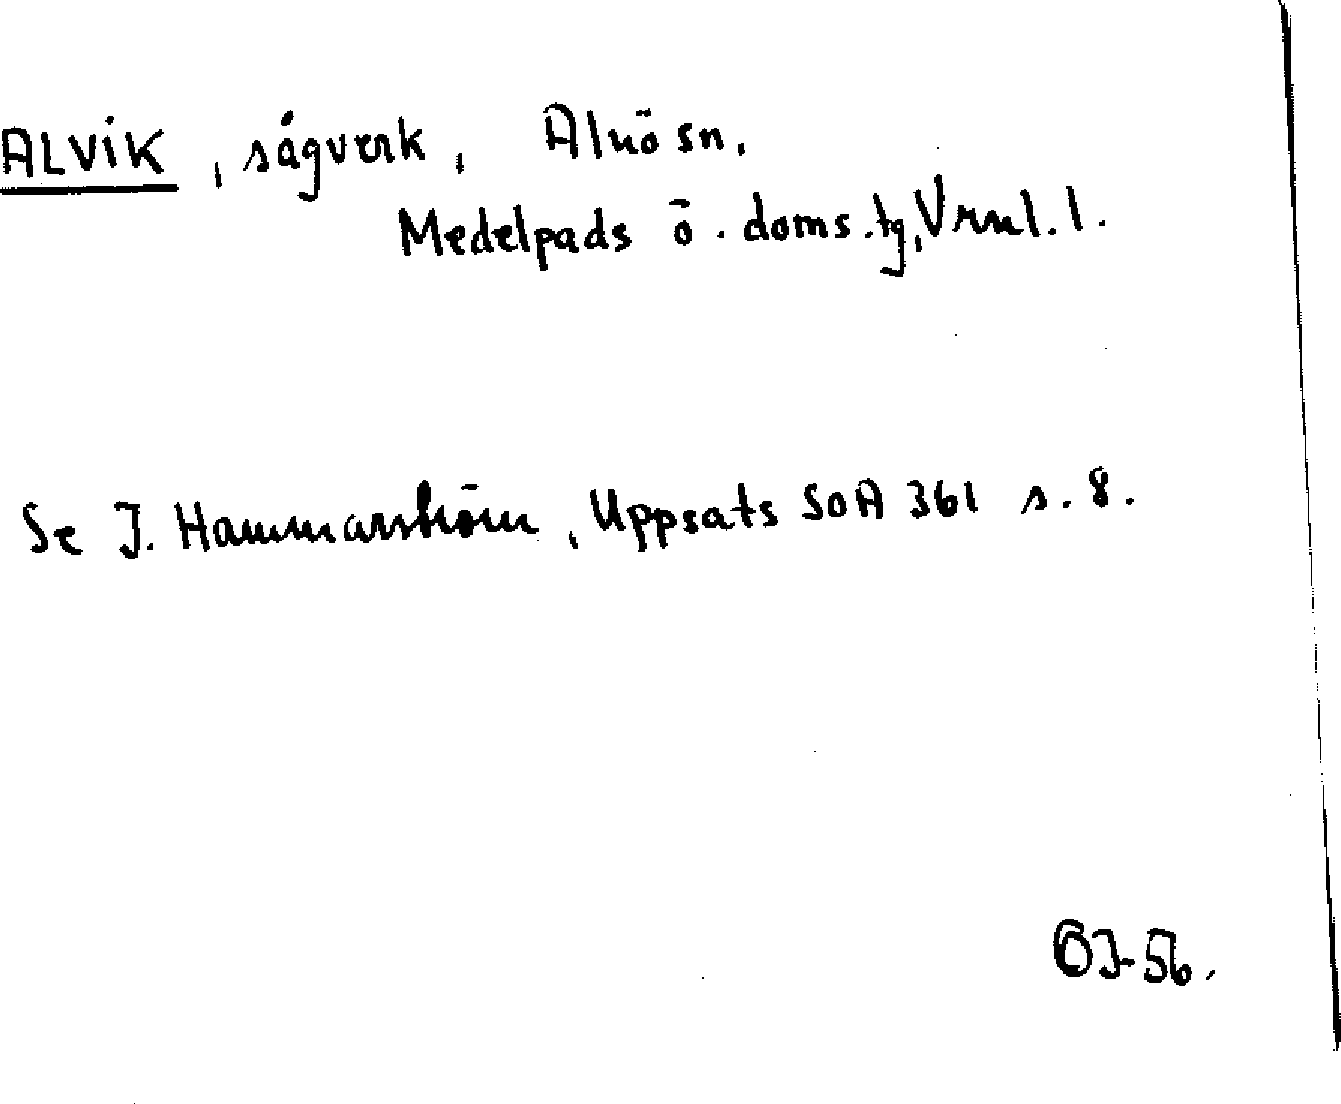 ALVIK, sågverk, Alnö sn,
Medelpads ö. doms.tg, Vrnl. l.
Se J. Hammarström, Uppsats SOA 361 s. 8.
OJ-56.